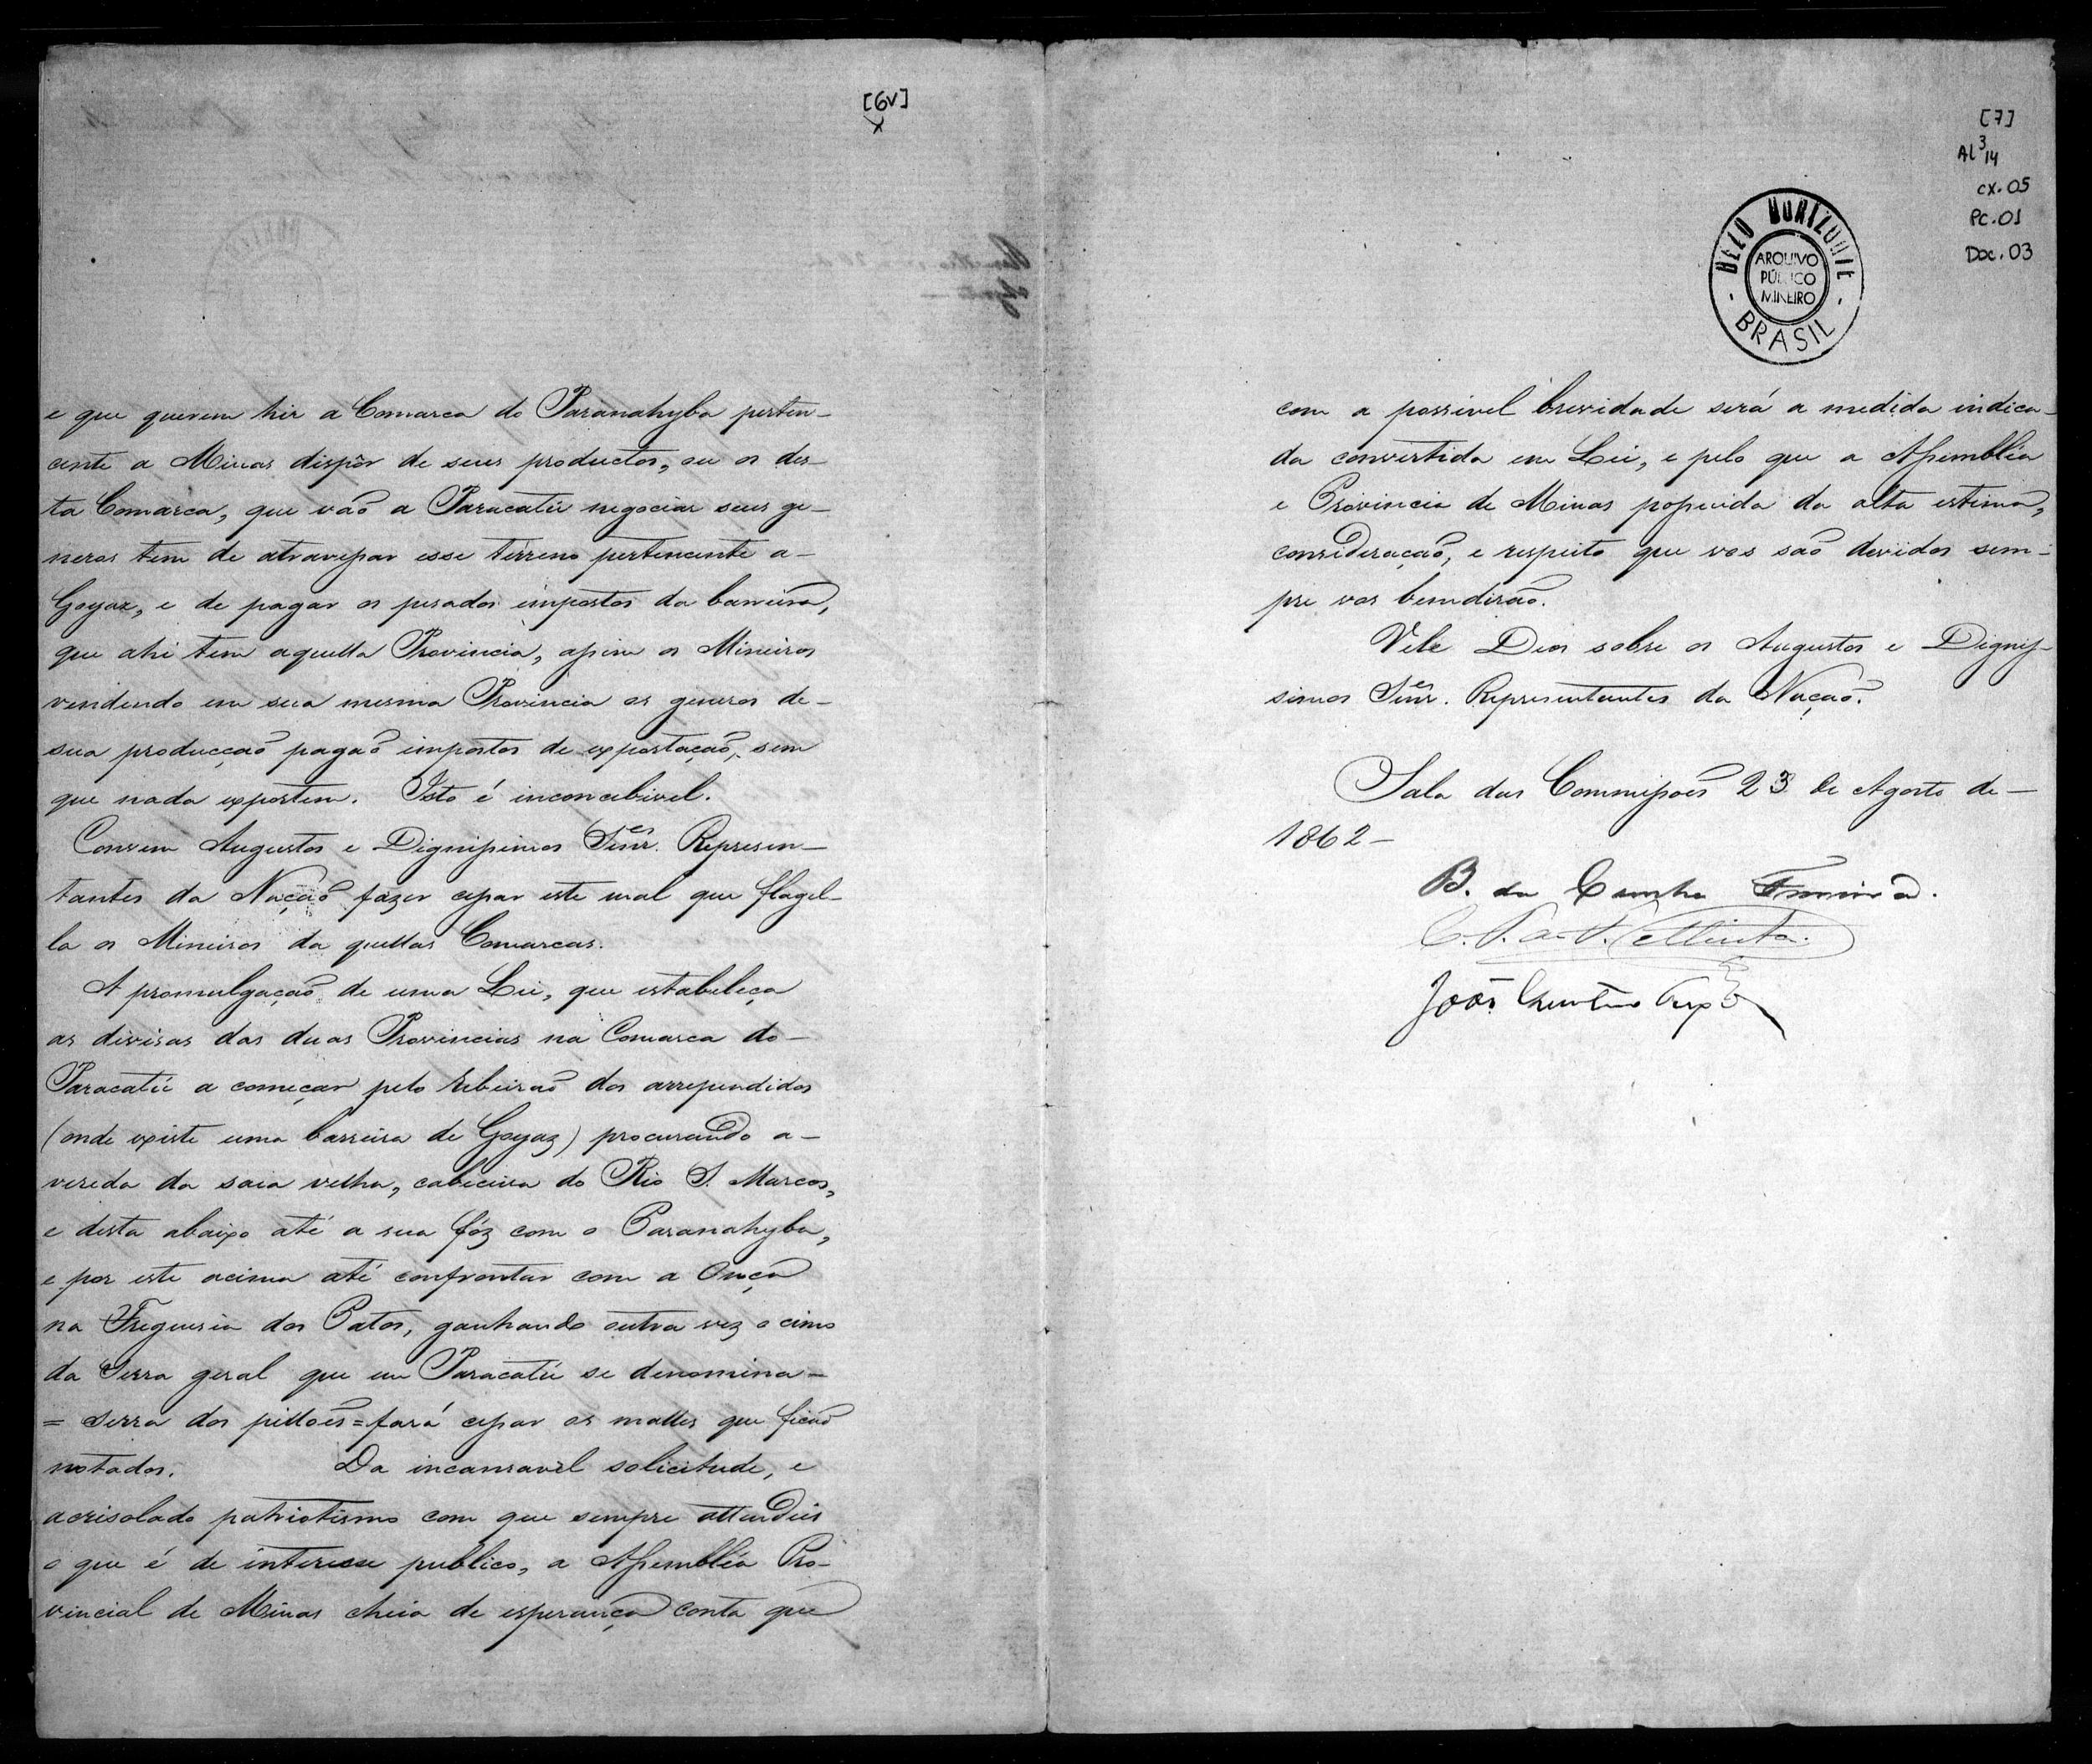 [6v]
e que querem hir a Comarca do Paranahyba perten-
cente a Minas dispôr de seus productos, ou os des-
ta Comarca, que vaõ a Paracatú negociar seus ge-
neros tem de atravessar esse terreno pertencente a-
Goyaz, e de pagar os pesados impostos da barreira,
que ahi tem aquella Provincia, assim os Mineiros
vendendo em sua mesma Provincia os generos de-
sua producçaõ pagaõ impostos de exportaçaõ, sem
que nada exportem. Isto é inconcebivel.
Convem Augustos e Dignissimos Senr.es Represen-
tantes da Naçaõ fazer cessar este mal que flagel-
la os Mineiros da quellas Comarcas.
A promulgaçaõ de uma Lei, que estabeleça
as divisas das duas Provincias na Comarca do-
Paracatú a começar pelo ribeiraõ dos arrependidos
(onde existe uma barreira de Goyaz) procurando a-
vereda da saia velha, cabeceira do Rio S. Marcos,
e desta abaixo até a sua fóz com o Paranahyba,
e por este acima até confrontar com a Onça
na Freguesia dos Patos, ganhando outra vez o cimo
da Serra geral que em Paracatú se denomina-
= Serra dos pillões = fará cessar os malles que ficaõ
notados. Da incansavel solicitude, e
acrisolado patriotismo com que sempre attendeis
o que é de interesse publico, a Assembléa Pro-
vincial de Minas cheia de esperança conta que
[7]
AL 3 14
cx. 05
Pc. 01
Doc. 03
BELLO HORIZONTE
ARQUIVO
PÚBLICO
MINEIRO
BRASIL
com a possivel brevidade será a medida indica-
da convertida em Lei, e pelo que a Assembléa
e Provincia de Minas possuida da alta estima,
consideraçaõ, e respeito que vos saõ devidos sem-
pre vos bemdiraõ.
Vele Deos sobre os Augustos e Dignis-
simos Senr.es Representantes da Naçaõ.
Sala das Commissoẽs 23 de Agosto de-
1862-
B. da Cunha
Joaõ